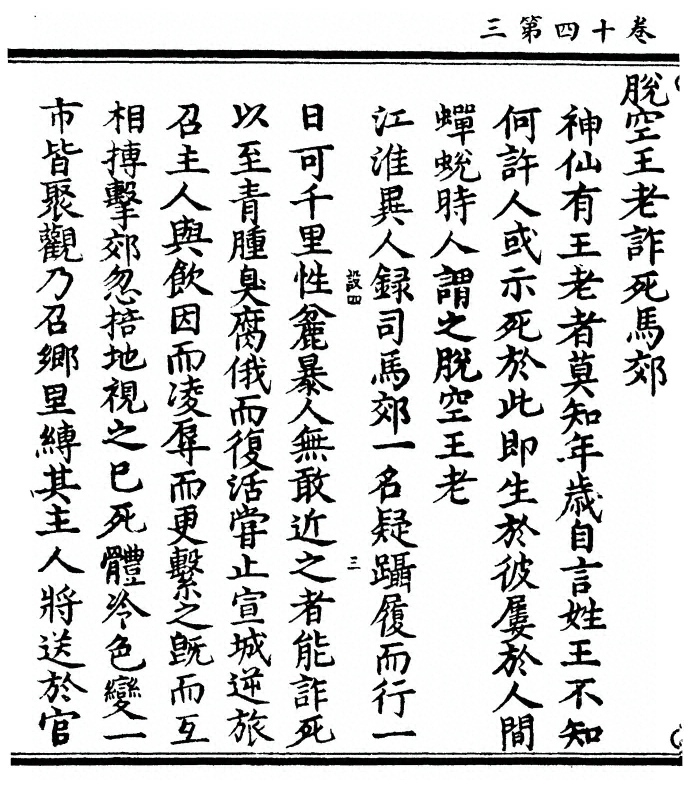 卷十四第三
脫空王老詐死馬郊
神仙有王老者莫知年歲自言姓王不知
何許人或示死於此即生於彼屢於人間
蟬蛻時人謂之脫空王老
江淮異人録司馬郊一名疑躡履而行一
設四
三
日可千里性麄暴人無敢近之者能詐死
以至青腫臭腐俄而復活甞止宣城逆旅
召主人與飲因而凌辱而更繫之既而互
相搏擊郊忽掊地視之已死體冷色變一
市皆聚觀乃召鄉里縛其主人將送於官